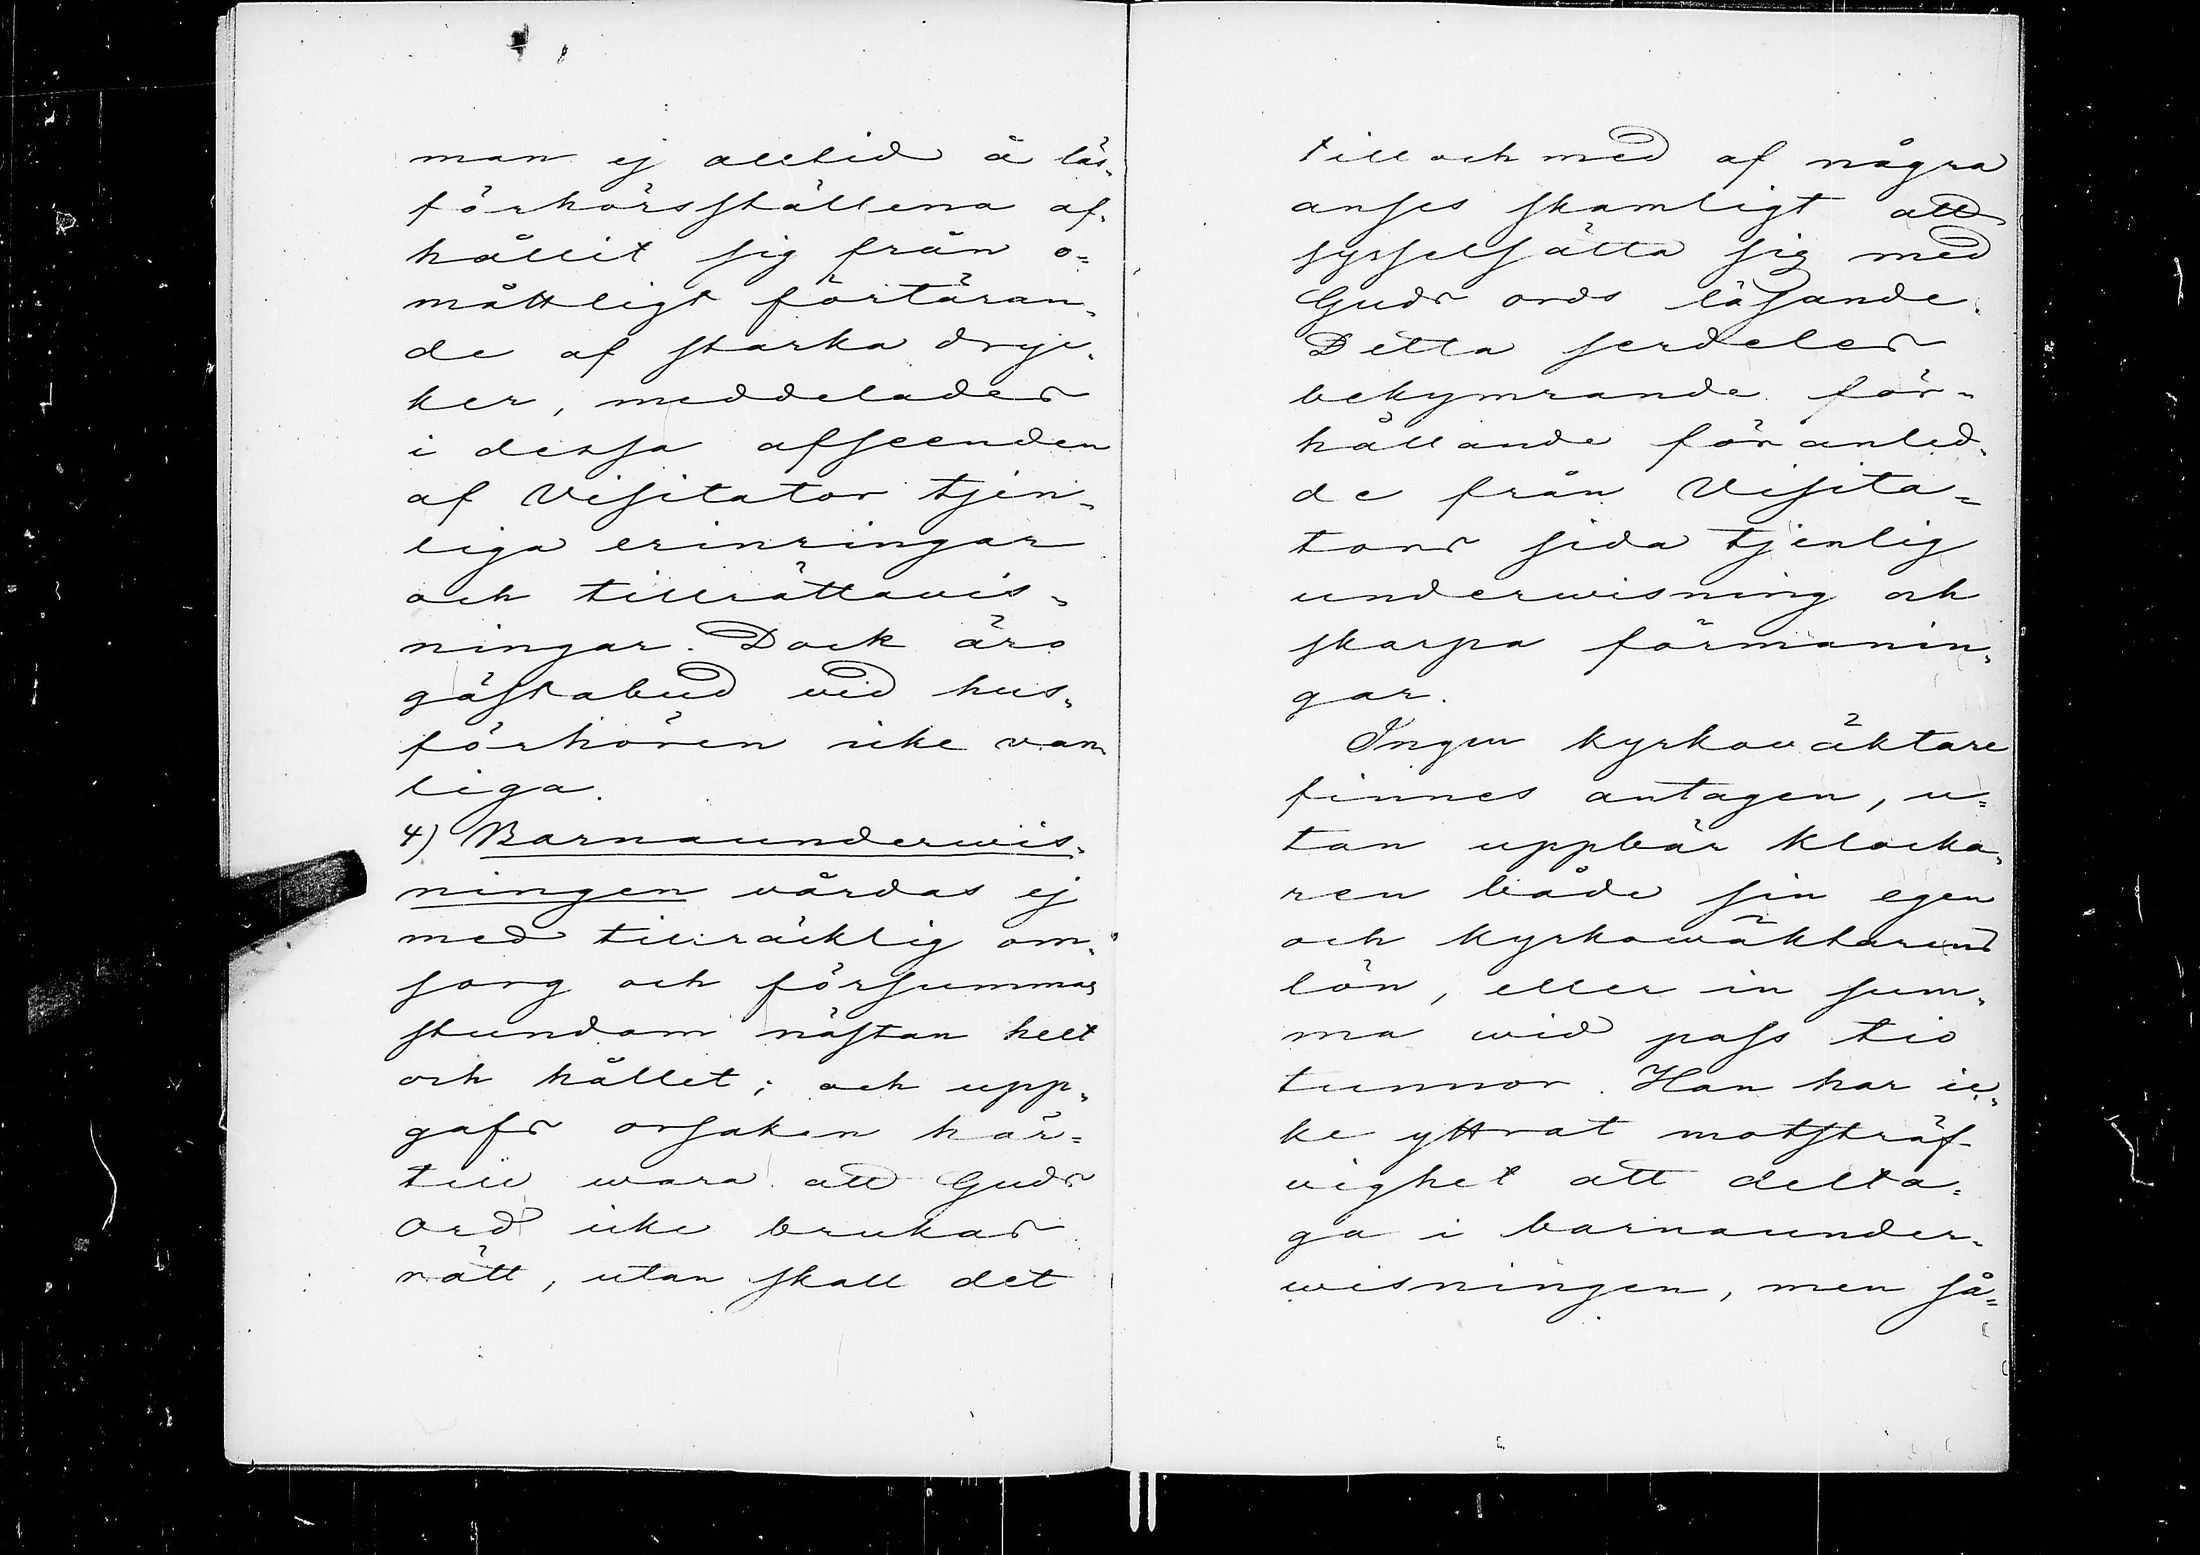 man ej alltid å läs-
förhörsställena af-
hållit sig från o=
måttligt förtäran-
de af starka dryc-
ker, meddelades
i dessa afseenden
af Visitator tjen-
liga erinringar
och tillrättavis-
ningar. Dock äro
gästabud vid hus-
förhören icke van-
liga.
4) Barnaunderwis-
ningen vårdas ej
med tillräcklig om-
sorg och försummas
stundom nästan helt
och hållet; och upp-
gafs orsaken här=
till wara att Guds
Ord icke brukas
rätt, utan skall det
till och med af några
anses skamligt att
sysselsätta sig med
Guds ords läsande.
Detta serdeles
bekymrande för-
hållande föranled-
de från Visita=
tors sida tjenlig
underwisning och
skarpa förmanin-
gar.
Ingen kyrkowäktare
finnes antagen, u=
tan uppbär klocka-
ren både sin egen
och kyrkowäktarens
lön, eller in sum-
ma wid pass tio
tunnor. Han har ic-
ke yttrat motsträf-
vighet att delta-
ga i barnaunder-
wisningen, men så=